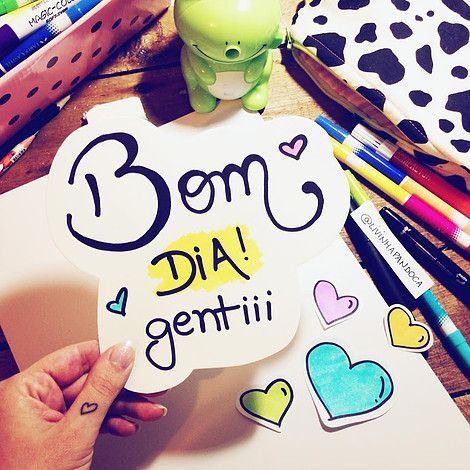 MAGIC-COLOR
Bom
DiA!
gentiii
@LIVINHAPANDOCA